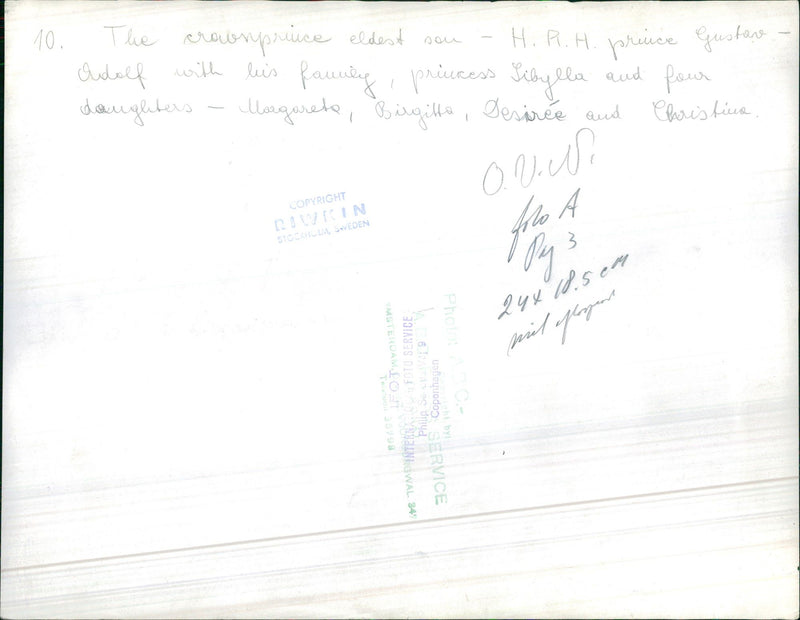 10. The crownprince eldest son - H.R.H. prince Gustav -
Adolf with his family, princess Sibylla and four
daughters - Margareta, Birgitta, Desirée and Christina.
O.V.N.
foto A
Pag 3
24x 18.5 cm
COPYRIGHT
RIWKIN
STOCKHOLM, SWEDEN
FOTO SERVICE
Copenhagen
SERVICE